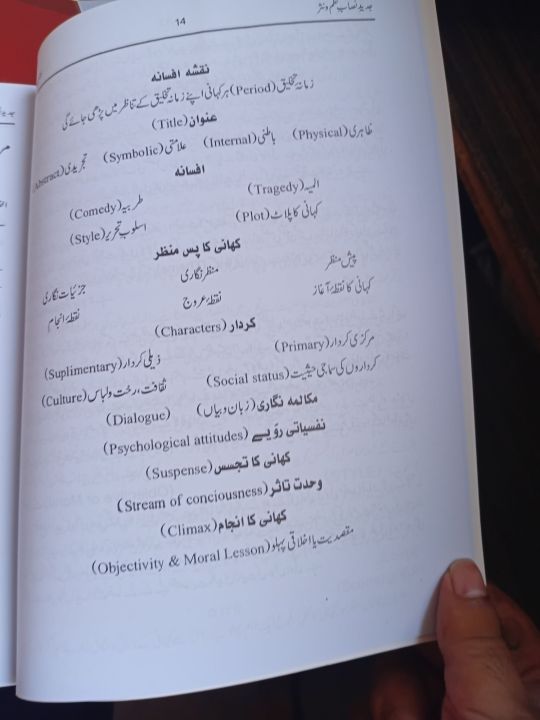 جدید نصاب نظم و نثر
14
نقشہ افسانہ
زمانہ تخلیق (Period) ہر کہانی اپنے زمانہ تخلیق کے تناظر میں پڑھی جائے گی
عنوان (Title)
ظاہری (Physical) باطنی (Internal) علامتی (Symbolic) تجریدی (Abstract)
افسانہ
المیہ (Tragedy) طربیہ (Comedy)
کہانی کا پلاٹ (Plot) اسلوب تحریر (Style)
کہانی کا پس منظر
پیش منظر منظر نگاری جزئیات نگاری
کہانی کا نقطۂ آغاز نقطۂ عروج نقطۂ انجام
کردار (Characters)
مرکزی کردار (Primary) ذیلی کردار (Suplimentary)
کرداروں کی سماجی حیثیت (Social status) ثقافت، رخت و لباس (Culture)
مکالمہ نگاری (زبان و بیاں) (Dialogue)
نفسیاتی رویے (Psychological attitudes)
کہانی کا تجسس (Suspense)
وحدت تاثر (Stream of conciousness)
کہانی کا انجام (Climax)
مقصدیت یا اخلاقی پہلو (Objectivity & Moral Lesson)